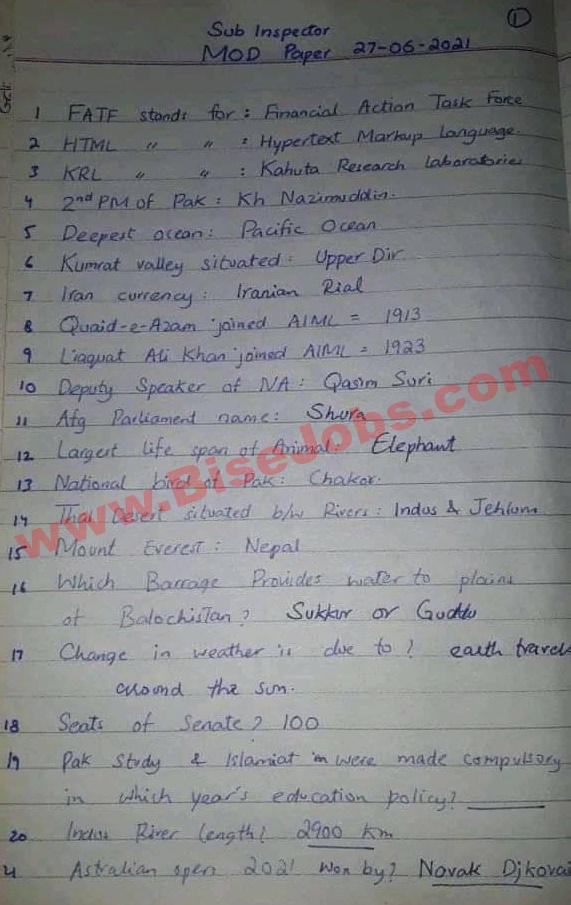 1
Sub Inspector
MOD Paper 27-06-2021
1 FATF stands for : Financial Action Task Force
2 HTML " " : Hypertext Markup Language.
3 KRL " " : Kahuta Research laboratories
4 2nd PM of Pak : Kh Nazimuddin.
5 Deepest ocean : Pacific Ocean
6 Kumrat valley situated : Upper Dir
7 Iran currency : Iranian Rial
8 Quaid-e-Azam joined AIML = 1913
9 Liaquat Ali Khan joined AIML = 1923
10 Deputy Speaker of NA : Qasim Suri
11 Afg Parliament name : Shura
12 Largest life span of Animal. Elephant
13 National bird of Pak : Chakor.
14 Thal Desert situated b/w Rivers : Indus & Jehlum
15 Mount Everest : Nepal
16 Which Barrage Provides water to plains
of Balochistan? Sukkur or Guddu
17 Change in weather is due to ? earth travels
around the sun.
18 Seats of Senate? 100
19 Pak Study & Islamiat in were made compulsory
in which year's education policy? ______
20 Indus River length? 2900 km
21 Astralian open 2021 won by? Novak Djkovai
www.BiseJobs.com